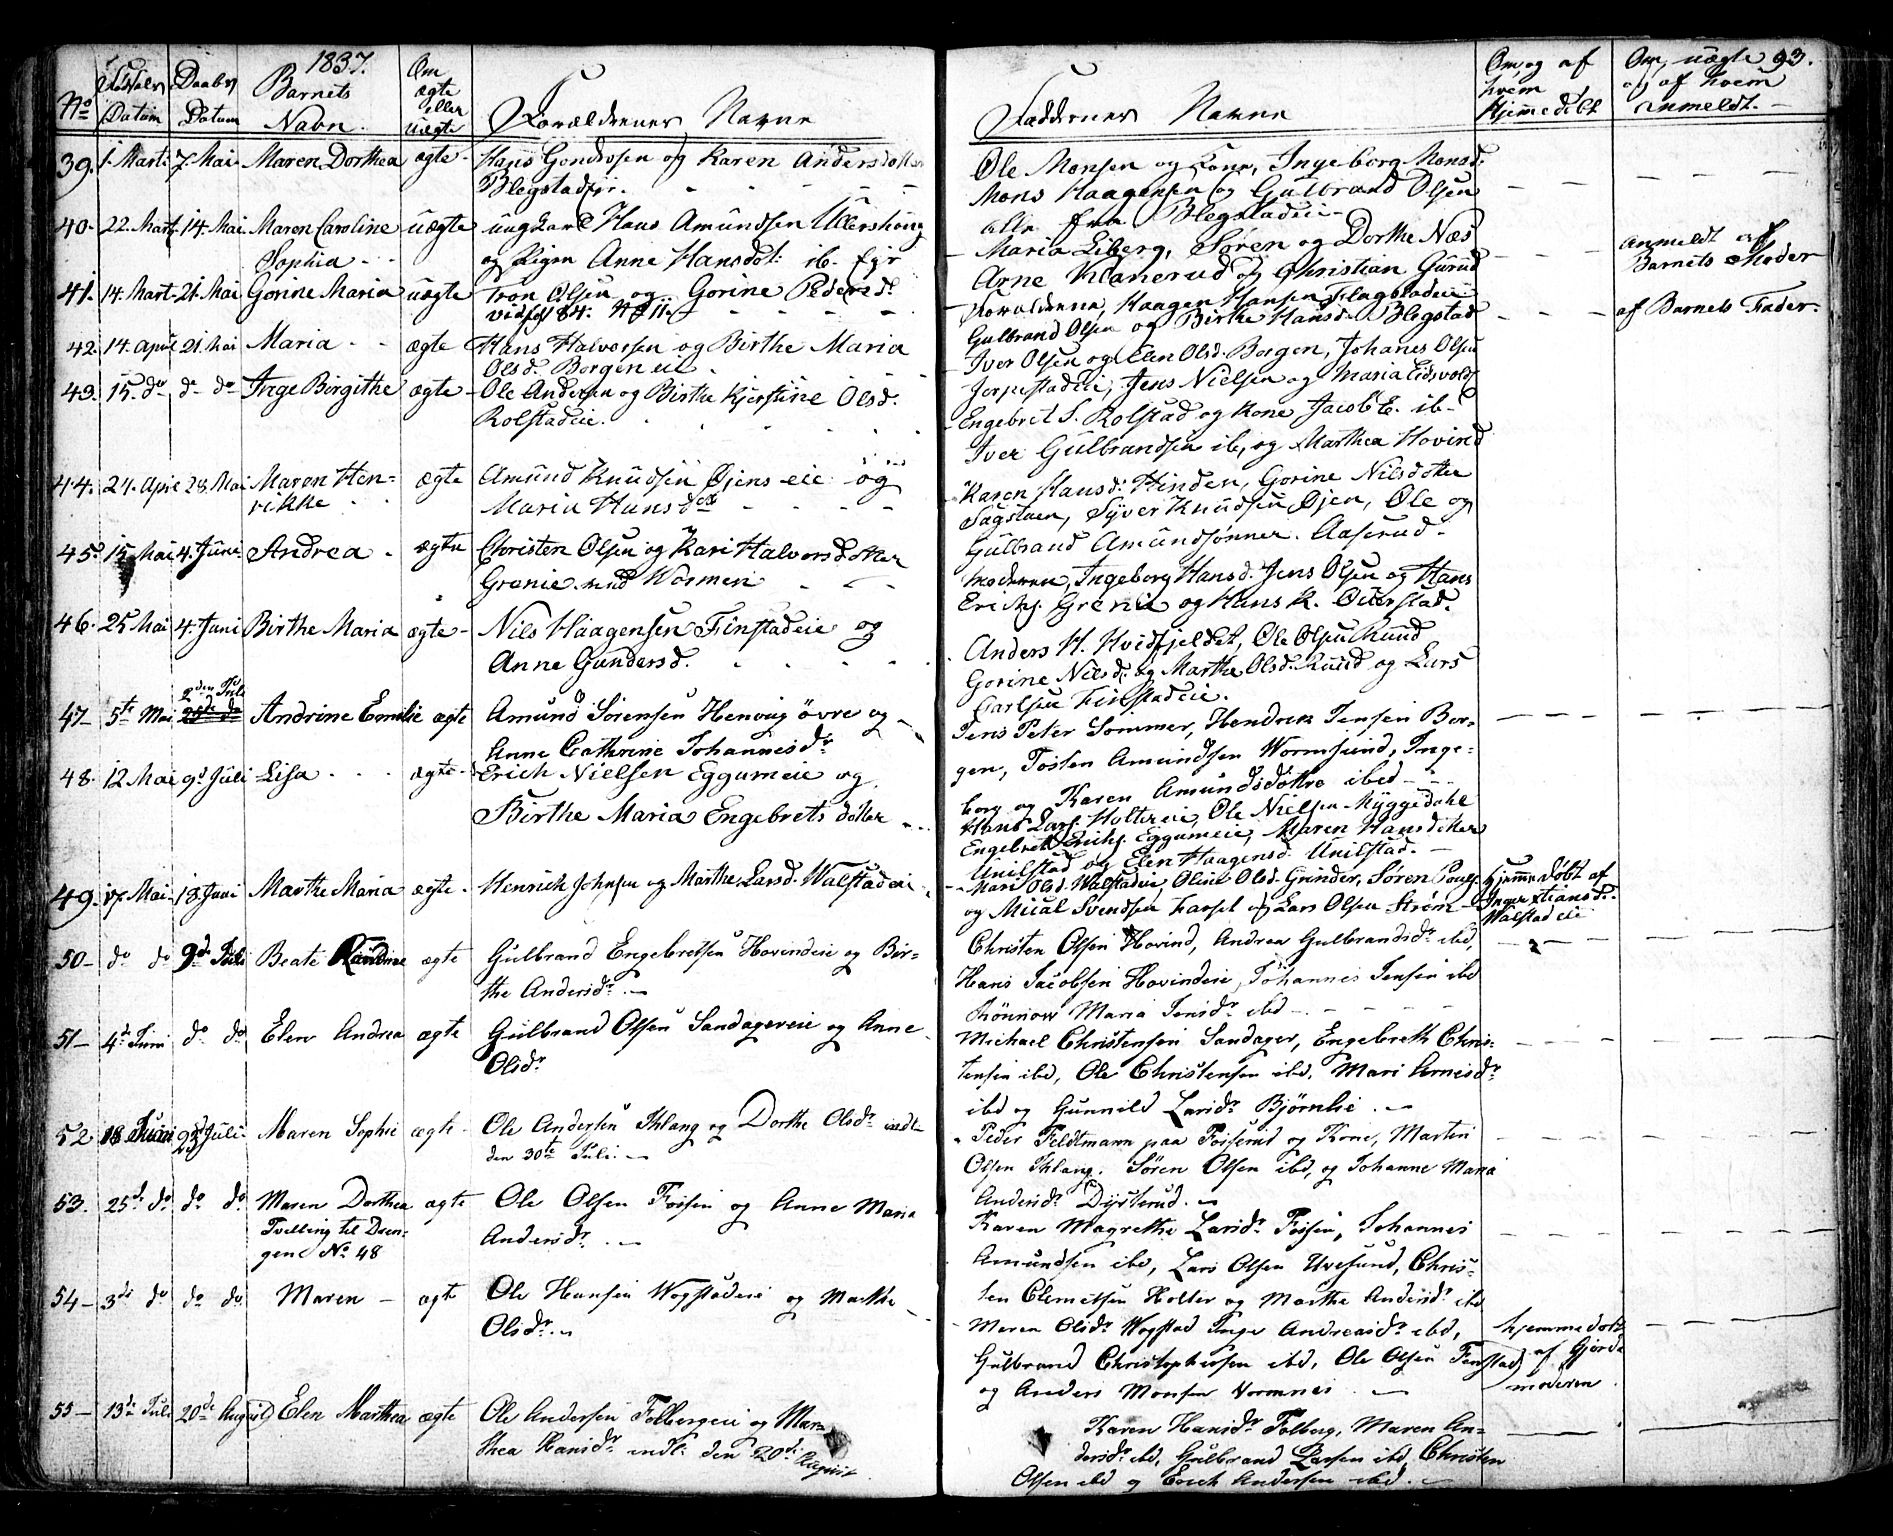 1837.
93.
No
Fødsels Datum
Daabs Datum
Barnets Navn.
Om ægte eller uægte
Forældrenes Navne
Faddernes Navne
Om, og af hvem Hjemmedøbt
Om uægte og af hvem anmeldt.
39. 1. Marts 7. Mai Maren Dorthea ægte Hans Gondersen og Karen Andersdatter
Blegstadeje.
Ole Monsen og Kone, Ingeborg Monsd.
Mons Haagensen og Gulbrand Olsen
alle fra Blegstadeie
40. 22. Mart 14. Mai Maren Caroline uægte ungkarl Hans Amundsen Ullershoug
Sophia og Pigen Anne Hansdt. ib. Ejr
Maria Liberg, Søren og Dorthe Næs
Arne Klanerud og Christian Gurud
Anmeldt af
Barnets Moder
41. 14. Mart 21. Mai Gorine Maria uægte Tron Olsen og Gorine Pedersd.
Forældrene, Haagen Hansen Flagstadeie
Gulbrand Olsen og Birthe Hansd. Blegstad
af Barnets Fader.
42. 14. April 21. Mai Maria ægte Hans Halvorsen og Birthe Maria
Olsd. Borgen eie
Iver Olsen og Elen Olsd. Borgen, Johanes Olsen
43. 15. do do do Inge Birgithe ægte Ole Andersen og Birthe Kjerstine Olsd.
Rolstadeie.
Jens Nielsen og Maria Eidsvold
Engebret S. Rolstad og Kone Jacob E. ib.
Iver Gulbrandsen ib, og Marthea Hovind
44. 24. April 28. Mai Maren Hen-
rikke ægte Amund Knudsen Øjens eie og
Maria Hansdt
Karen Hansd. Hinden, Gorine Nilsdatter
Sagstuen, Syver Knudsen Øjen, Ole og
Gulbrand Amundsønner Aaserud.
45. 15 Mai 4. Juni Andrea ægte Christen Olsen og Kari Halvorsdatter
Grenie
Moderen, Ingeborg Hansd. Jens Olsen og Hans
Erichs. Grenie og Hans K. Outerstad.
46. 25 Mai 4. Juni Birthe Maria ægte Nils Haagensen Finstadeie og
Anne Gundersd.
Anders H. Hvidfjeldet, Ole Olsen Ruud
Gorine Nilsd. og Marthe Olsd. Ruud og Lars
Carlsen Finstadeie.
47 5te Mai 2den Juli Andrine Emilie ægte Amund Sørensen Henoug øvre og
Anne Cathrine Johannesdr
Jens Peter Sommer, Hendrik Jensen Bor-
gen, Tosten Amundsen Wormsund, Inge-
borg og Karen Amundsdøttre ibed
48. 12 Mai 9d Juli Lisa ægte Erich Nielsen Eggumeie og
Birthe Maria Engebrets datter
Hans Lars. Holtereie, Ole Nielsen Myggedahl
Engebret Erichs. Eggumeie, Maren Hansdatter
Unilstad og Elen Haagensd. Unilstad.
49. 17. Mai 18. Juni Marthe Maria ægte Henrich Johnsen og Marthe Larsd. Walstadeie
Mari Olsd. Walstadeie, Oline Olsd. Grinder, Søren Pouls.
og Micäl Svendsen Farset og Lars Olsen Strøm
Hjemmedøbt af
Inger Xtiansd.
Walstadeie
50 do do 9d Juli Beate Randine ægte Gulbrand Engebretsen Hovindeie og Bir-
the Andersdr
Christen Olsen Hovind, Andrea Gulbrandsdr ibd,
Hans Jacobsen Hovindeie, Johannes Jensen ibd
Rønnow Maria Jensdr ibd
51 4de Juni do do Elen Andrea ægte Gulbrand Olsen Sandagereie og Anne
Olsdr
Michael Christensen Sandager, Engebreth Chris-
tensen ibd, Ole Christensen ibd, Mari Arnesdr
ibd og Gunnild Larsdr Bjørnlie.
52 18 Juni 9d Juli Maren Sophie ægte Ole Andersen Ihlang og Dorthe Olsdr indl.
den 30te Juli
Peder Feldtmann paa Foiserud og Kone, Martin
Olsen Ihlang. Søren Olsen ibd, og Johanne Maria
Andersdr Dysterud.
53. 25de do do do Maren Dorthea
Tvilling til Dren-
gene No 48 ægte Ole Olsen Fossen og Anne Maria
Andersdr
Karen Magrethe Larsdr Fossen, Johannes
Amundsen ibd, Lars Olsen Uvesund, Chris-
ten Clemetsen Holter og Marthe Andersdr ibd
54 3de do do do Maren ægte Ole Hansen Wogstadeie og Marthe
Olsdr
Maren Olsdr Wogstad Inge Andreasdr ibd,
Gulbrand Christophersen ibd, Ole Olsen Fenstad
og Anders Monsen Vormnes
hjemmedøbt
af Gjorde
moderen
55 13de Juli 20de August Elen Marthea ægte Ole Andersen Folbergeie og Mar-
thea Hansdr indl. den 20de August
Karen Hansdr Folberg, Maren An-
dersdr ibd, Gulbrand Larsen ibd, Christen
Olsen ibd og Erich Andersen ibd.